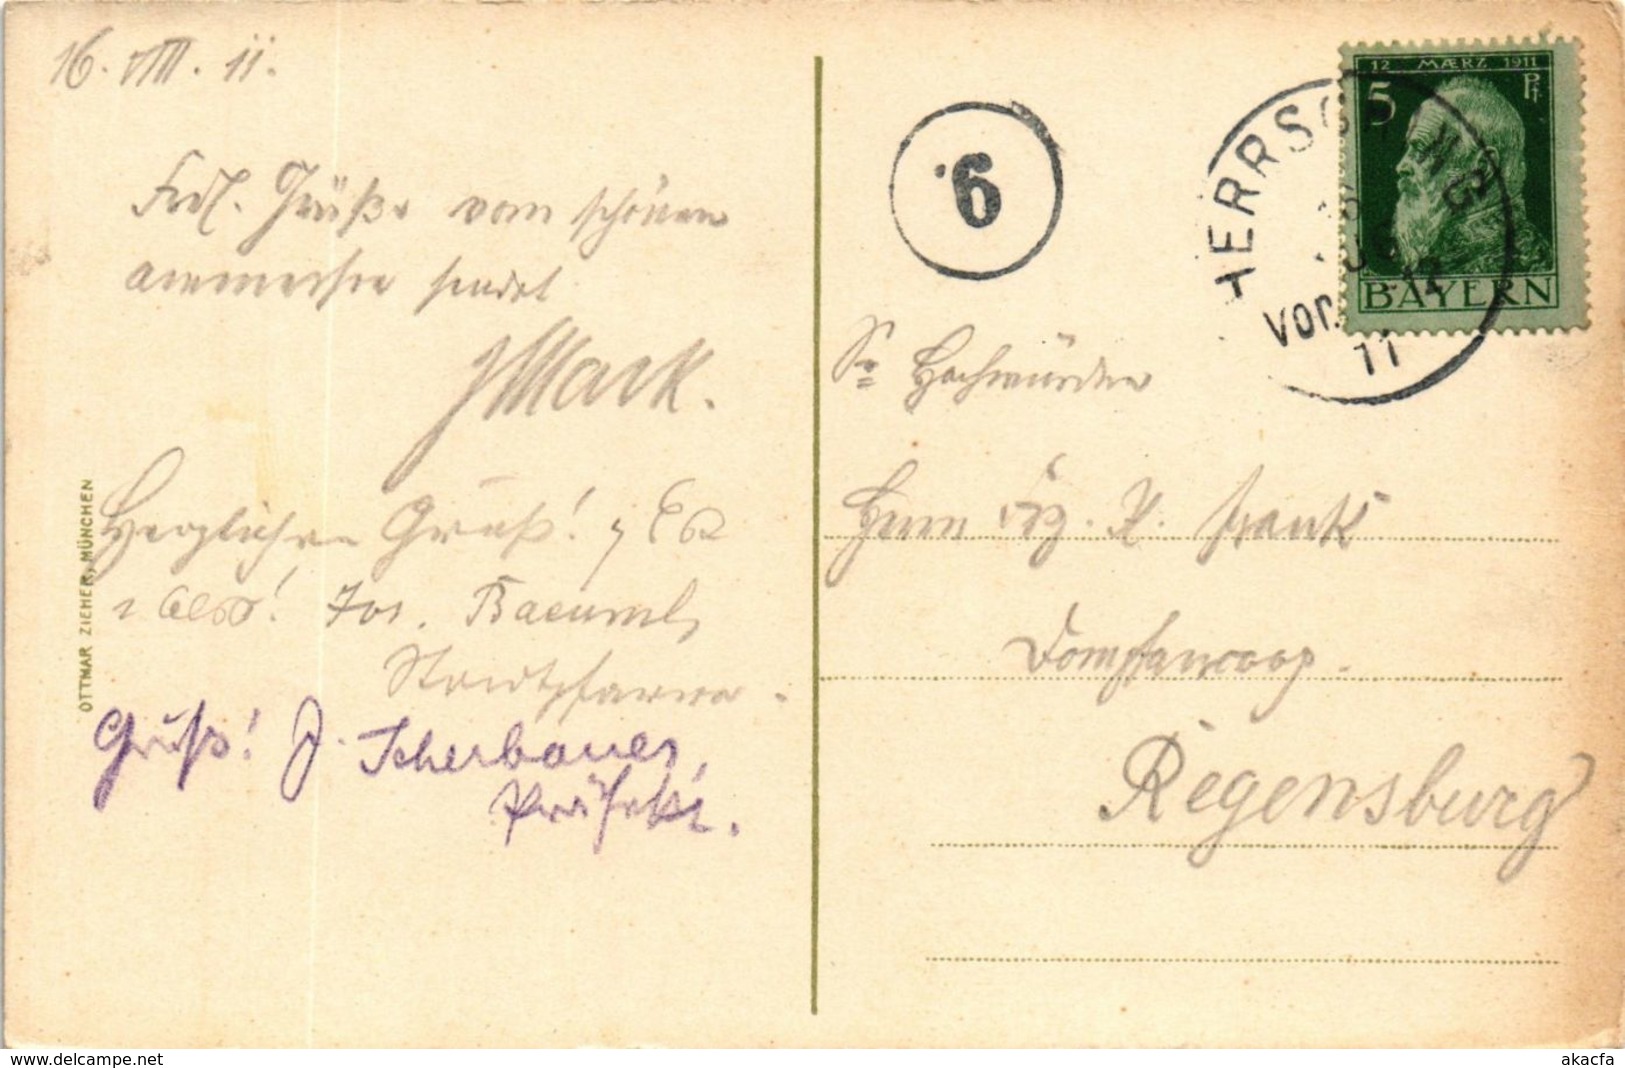 16. VIII. 11.
Frdl. Grüße vom schönen
Ammersee sendet
Mark.
Herzlichen Gruß!
Jos. Baeuml,
Stadtpfarrer.
Gruß! J. Scherbauer,
Präfekt.
OTTMAR ZIEHER, MÜNCHEN
6
12 MÆRZ 1911
5 Pf.
BAYERN
HERRSCHING
Vor.
11
Sr Hochwürden
Herrn Frz. X. Frank
Dompfarrcoop.
Regensburg
www.delcampe.net
akacfa